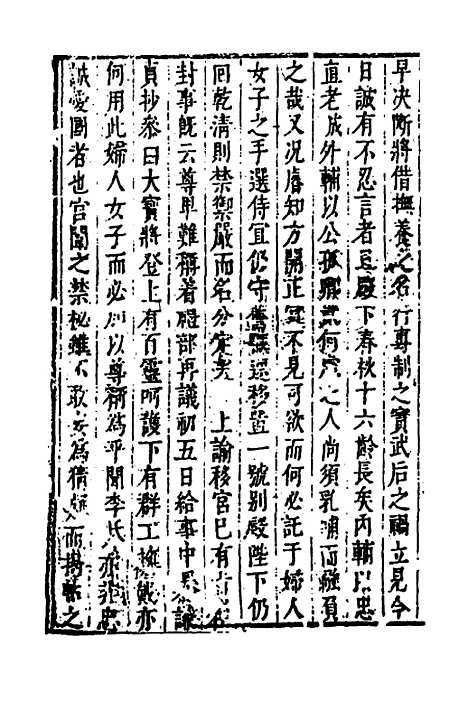 早决斷將借撫養之名行專制之實武后之禍立見今
日誠有不忍言者且殿下春秋十六齡長矣内輔以忠
直老成外輔以公孤卿何之人尚須乳哺而襁負
之哉又况睿知方開正宜不見可欲而何必託于婦人
女子之手選侍宜仍守舊遷移置一號别殿陛下仍
囘乾清則禁禦嚴而名分定矣 上諭移宮已有㫖
封事旣云尊卑難稱着禮部再議初五日給事中
貞抄叅曰大寶將登上有百靈呵護下有群工擁戴亦
何用此婦人女子而必加以尊稱為乎聞李氏亦非忠
誠愛國者也宮闈之禁秘雖不敢妄為猜疑而之